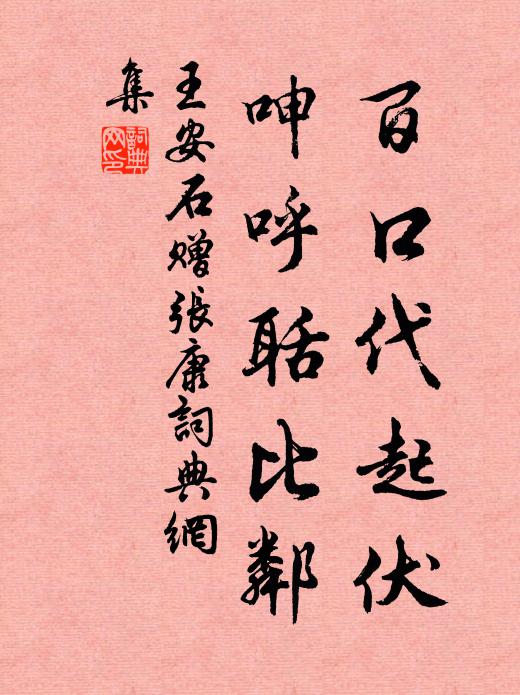 百口代起伏
呻呼聒比鄰
王安石贈張康詞典網
集
詞典網印